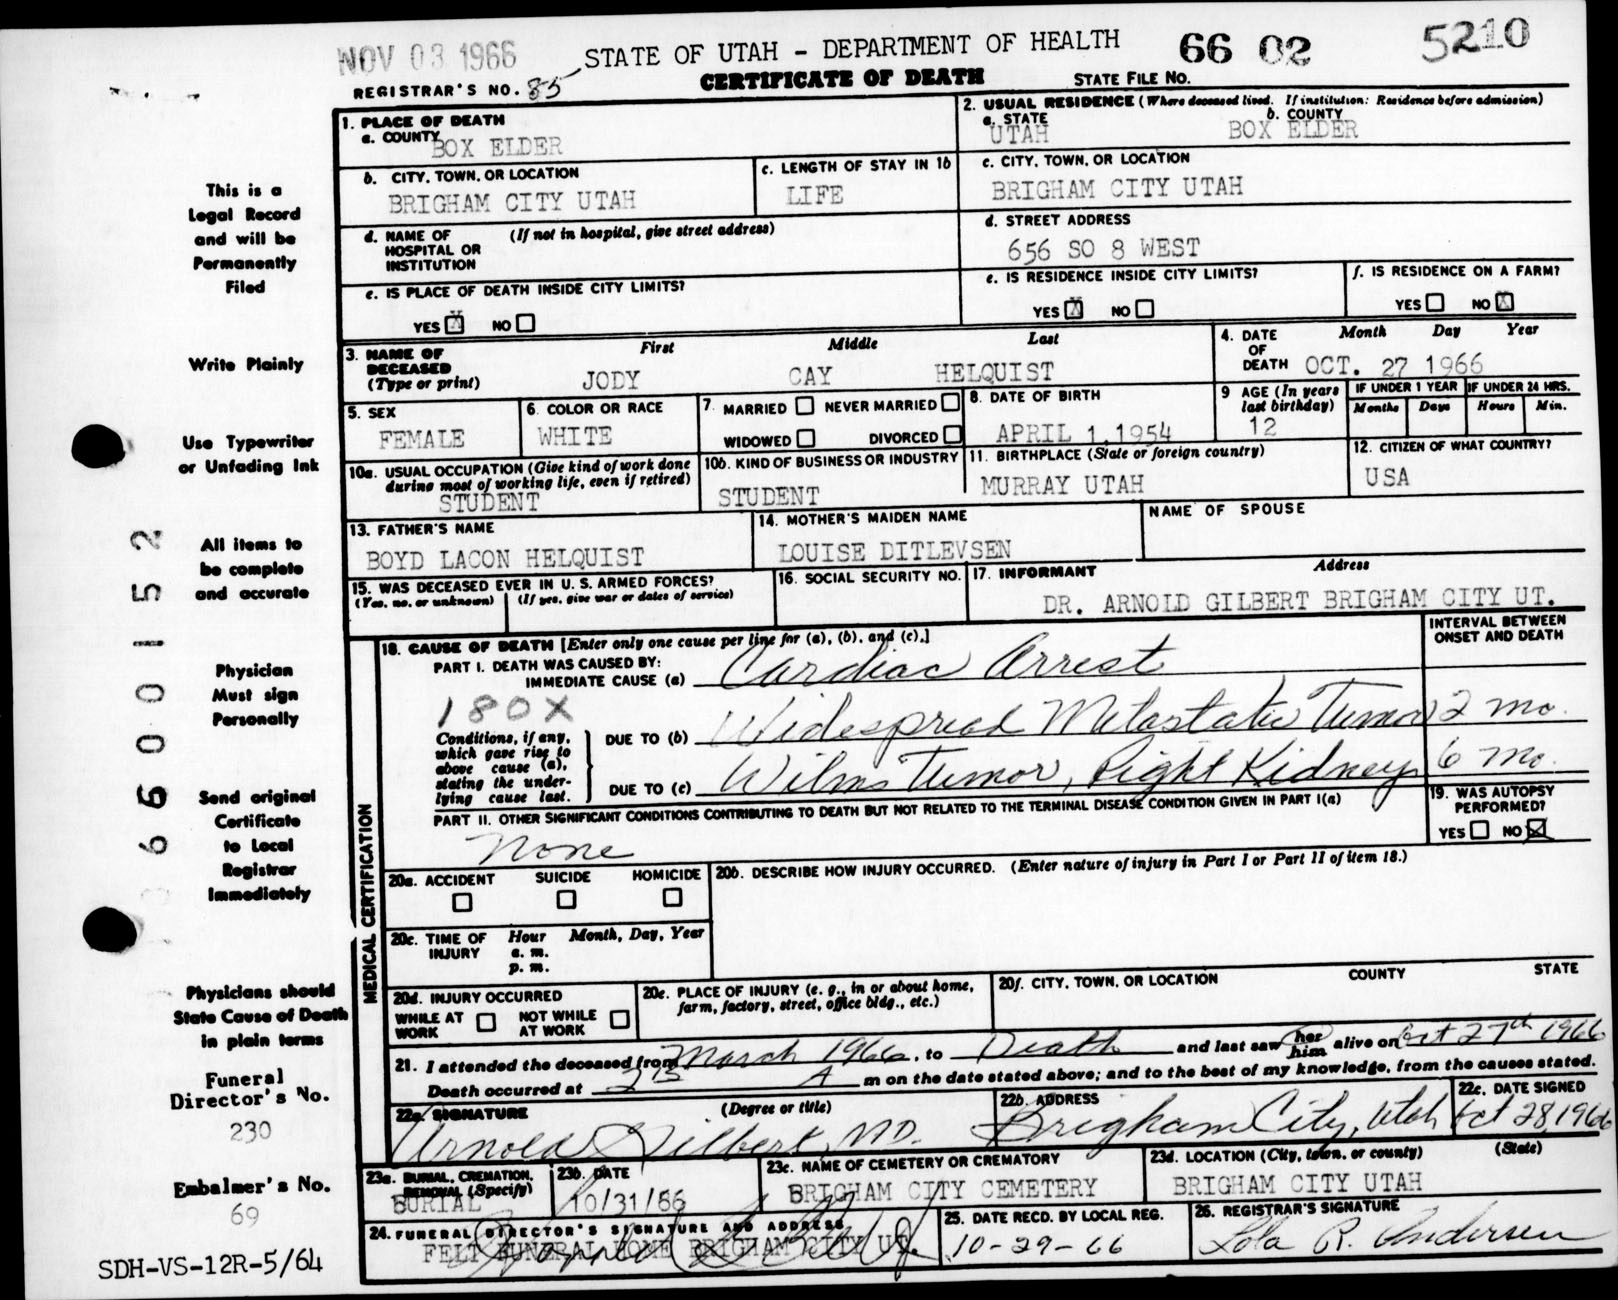 NOV 03 1966 STATE OF UTAH - DEPARTMENT OF HEALTH 66 02 5210
REGISTRAR'S NO. 85 CERTIFICATE OF DEATH STATE FILE NO.
1. PLACE OF DEATH
a. COUNTY BOX ELDER
2. USUAL RESIDENCE (Where deceased lived. If institution: Residence before admission)
a. STATE UTAH b. COUNTY BOX ELDER
b. CITY, TOWN, OR LOCATION BRIGHAM CITY UTAH
c. LENGTH OF STAY IN 1b LIFE
c. CITY, TOWN, OR LOCATION BRIGHAM CITY UTAH
d. NAME OF HOSPITAL OR INSTITUTION (If not in hospital, give street address)
d. STREET ADDRESS 656 SO 8 WEST
e. IS PLACE OF DEATH INSIDE CITY LIMITS?
YES X NO
e. IS RESIDENCE INSIDE CITY LIMITS?
YES X NO
f. IS RESIDENCE ON A FARM?
YES NO X
3. NAME OF DECEASED (Type or print)
First Middle Last
JODY CAY HELQUIST
4. DATE OF DEATH Month Day Year
OCT. 27 1966
5. SEX FEMALE
6. COLOR OR RACE WHITE
7. MARRIED NEVER MARRIED
WIDOWED DIVORCED
8. DATE OF BIRTH APRIL 1, 1954
9 AGE (In years last birthday) 12
IF UNDER 1 YEAR IF UNDER 24 HRS.
Months Days Hours Min.
10a. USUAL OCCUPATION (Give kind of work done during most of working life, even if retired)
STUDENT
10b. KIND OF BUSINESS OR INDUSTRY
STUDENT
11. BIRTHPLACE (State or foreign country)
MURRAY UTAH
12. CITIZEN OF WHAT COUNTRY?
USA
13. FATHER'S NAME
BOYD LACON HELQUIST
14. MOTHER'S MAIDEN NAME
LOUISE DITLEVSEN
NAME OF SPOUSE
15. WAS DECEASED EVER IN U. S. ARMED FORCES?
(Yes, no, or unknown) (If yes, give war or dates of service)
16. SOCIAL SECURITY NO.
17. INFORMANT Address
DR. ARNOLD GILBERT BRIGHAM CITY UT.
MEDICAL CERTIFICATION
18. CAUSE OF DEATH [Enter only one cause per line for (a), (b), and (c).]
INTERVAL BETWEEN ONSET AND DEATH
PART I. DEATH WAS CAUSED BY:
IMMEDIATE CAUSE (a) Cardiac Arrest
180X
Conditions, if any, which gave rise to above cause (a), stating the underlying cause last.
DUE TO (b) Widespread Metastatic Tumor 2 mo.
DUE TO (c) Wilms Tumor, Right Kidney 6 mo.
PART II. OTHER SIGNIFICANT CONDITIONS CONTRIBUTING TO DEATH BUT NOT RELATED TO THE TERMINAL DISEASE CONDITION GIVEN IN PART I(a)
None
19. WAS AUTOPSY PERFORMED?
YES NO X
20a. ACCIDENT SUICIDE HOMICIDE
20b. DESCRIBE HOW INJURY OCCURRED. (Enter nature of injury in Part I or Part II of item 18.)
20c. TIME OF INJURY Hour Month, Day, Year
a. m.
p. m.
20d. INJURY OCCURRED
WHILE AT WORK NOT WHILE AT WORK
20e. PLACE OF INJURY (e. g., in or about home, farm, factory, street, office bldg., etc.)
20f. CITY, TOWN, OR LOCATION COUNTY STATE
21. I attended the deceased from March 1966, to Death and last saw her him alive on Oct 27th 1966
Death occurred at 2 15 A m on the date stated above; and to the best of my knowledge, from the causes stated.
22a. SIGNATURE (Degree or title)
Arnold Gilbert, MD.
22b. ADDRESS
Brigham City, Utah
22c. DATE SIGNED
Oct 28, 1966
23a. BURIAL, CREMATION, REMOVAL (Specify)
BURIAL
23b. DATE
10/31/66
23c. NAME OF CEMETERY OR CREMATORY
BRIGHAM CITY CEMETERY
23d. LOCATION (City, town, or county) (State)
BRIGHAM CITY UTAH
24. FUNERAL DIRECTOR'S SIGNATURE AND ADDRESS
FELT FUNERAL HOME BRIGHAM CITY UT.
25. DATE RECD. BY LOCAL REG.
10-29-66
26. REGISTRAR'S SIGNATURE
Lola R. Andersen
This is a
Legal Record
and will be
Permanently
Filed
Write Plainly
Use Typewriter
or Unfading Ink
All items to
be complete
and accurate
Physician
Must sign
Personally
Send original
Certificate
to Local
Registrar
Immediately
Physicians should
State Cause of Death
in plain terms
Funeral
Director's No.
230
Embalmer's No.
69
SDH-VS-12R-5/64
6600152